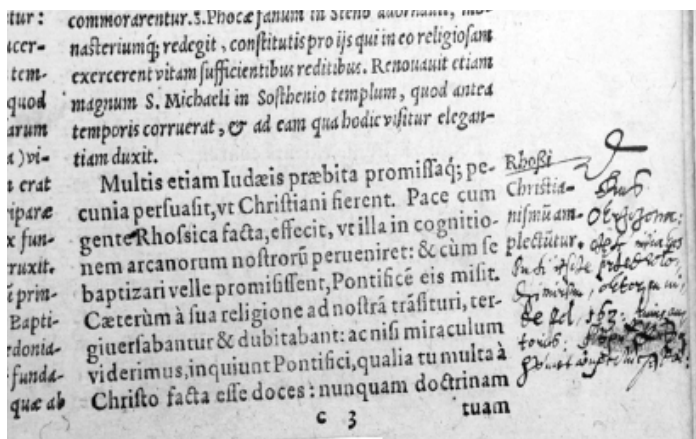 tur:
ucer-
tem-
quod
arum
a) vi-
t erat
iparæ
x fun-
ruxit.
ē prin-
Bapti-
donia-
funda-
quæ ab
commorarentur. S. Phocæ fanum in Steno adornauit, mo-
nasteriumq́; redegit, constitutis pro ijs qui in eo religiosam
exercerent vitam sufficientibus reditibus. Renouauit etiam
magnum S. Michaeli in Sosthenio templum, quod antea
temporis corruerat, & ad eam qua hodie visitur elegan-
tiam duxit.
Multis etiam Iudæis præbita promissaq́; pe-
cunia persuasit, vt Christiani fierent. Pace cum
gente Rhossica facta, effecit, vt illa in cognitio-
nem arcanorum nostrorū perueniret: & cùm se
baptizari velle promisissent, Pontificē eis misit.
Cæterùm à sua religione ad nostrā trāsituri, ter-
giuersabantur & dubitabant: ac nisi miraculum
viderimus, inquiunt Pontifici, qualia tu multa à
Christo facta esse doces: nunquam doctrinam
c 3 tuam
Rhoßi
Christia-
nismū am-
plectūtur.